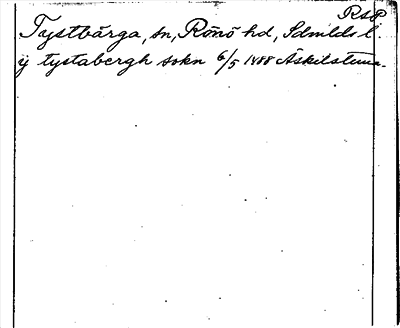 RsP
Tystbärga, sn, Rönö hd, Sdmlds l.
ÿ tystabergh sokn 6/5 1488 Äskilstuna.